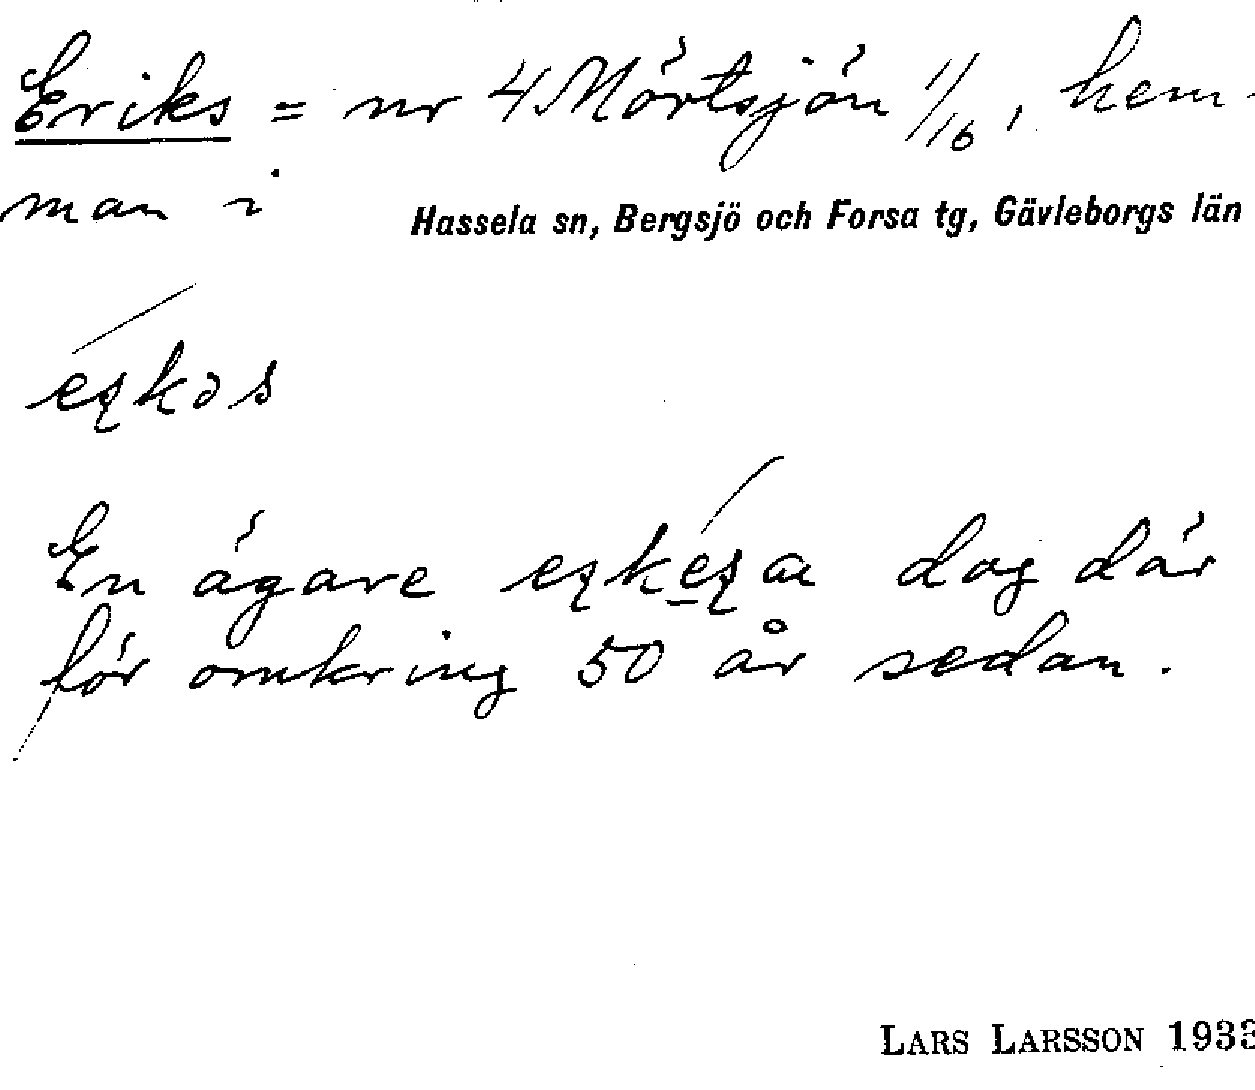 Eriks = nr 4 Mörtsjön 1/16, hem-
man i Hassela sn, Bergsjö och Forsa tg, Gävleborgs län
En ägare dog där
för omkring 50 år sedan.
LARS LARSSON 1933